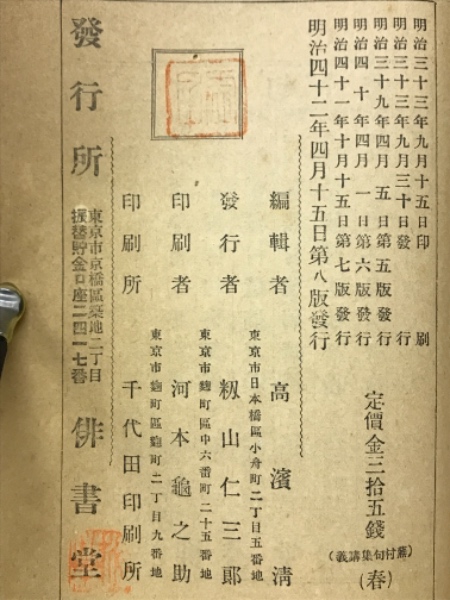 明治三十三年九月十五日印刷
明治三十三年九月三十日發行
明治三十九年四月五日第五版發行
明治四十年四月一日第六版發行
明治四十一年十月十五日第七版發行
明治四十二年四月十五日第八版發行
定價金三拾五錢
(蕪村句集講義)
(春)
編輯者 高濱清
東京市日本橋區小舟町二丁目五番地
發行者 籾山仁三郎
東京市麹町區中六番町二十五番地
印刷者 河本龜之助
東京市麹町區麹町二丁目九番地
印刷所 千代田印刷所
發行所 俳書堂
東京市京橋區築地二丁目
振替貯金口座二四一七番